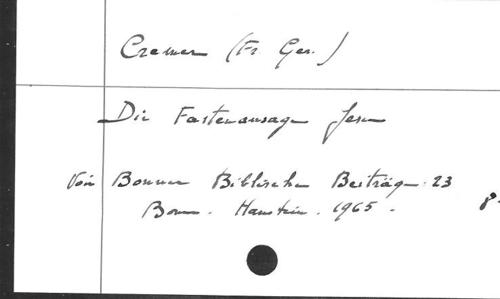 Cremer (Fr. Ger.)
Die Fastenansage Jesu
Voir Bonner Biblische Beiträge. 23
Bonn. Hanstein. 1965.
8.